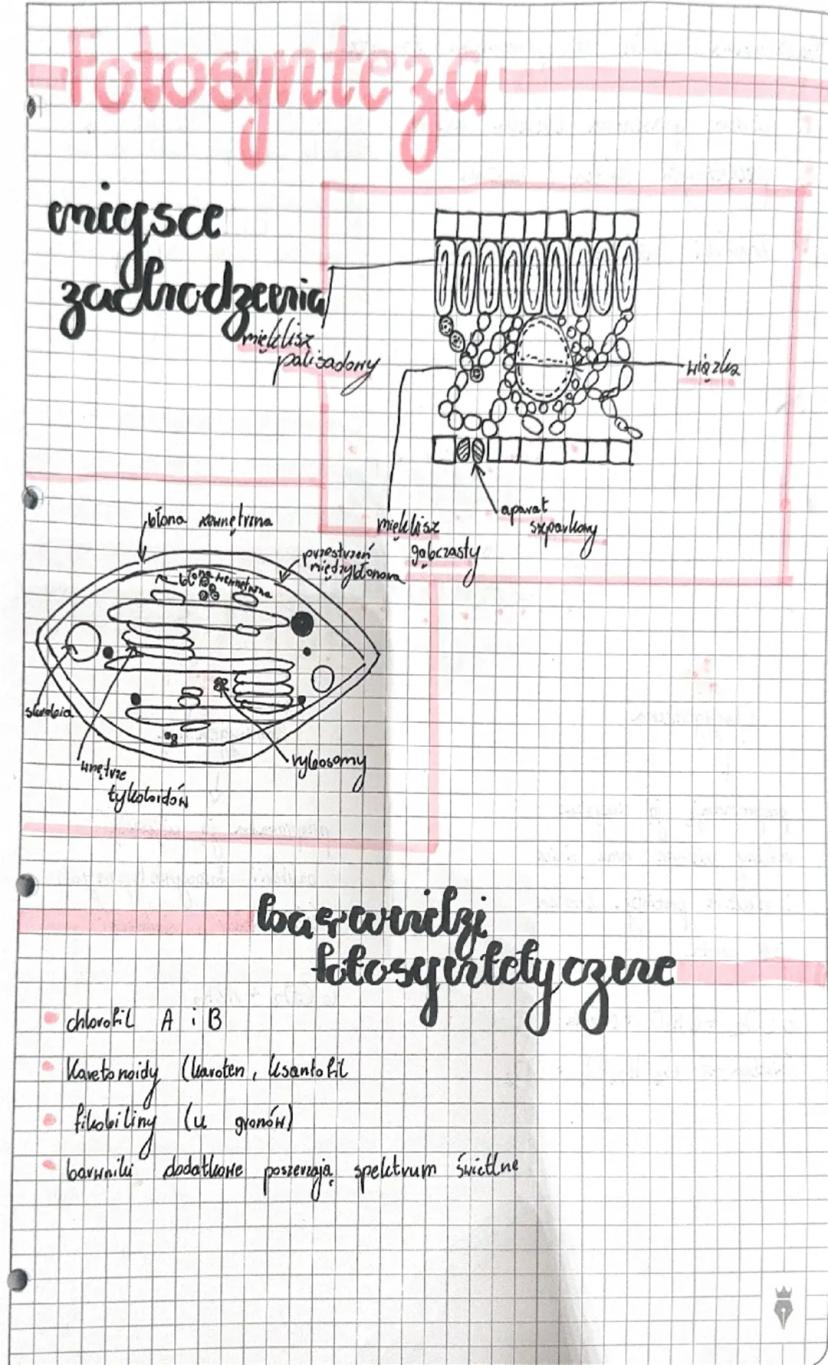 Fotosynteza
miejsce
zachodzenia
miękisz
palisadowy
wiązka
miękisz
gąbczasty
aparat
szparkowy
błona zewnętrzna
przestrzeń
międzybłonowa
błona wewnętrzna
skrobia
wnętrze
tykoloidów
rybosomy
barwniki
fotosyntetyczne
chlorofil A i B
karetonoidy (karoten, ksantofil
fikobiliny (u gronów)
barwniki dodatkowe poszerzają spektrum świetlne